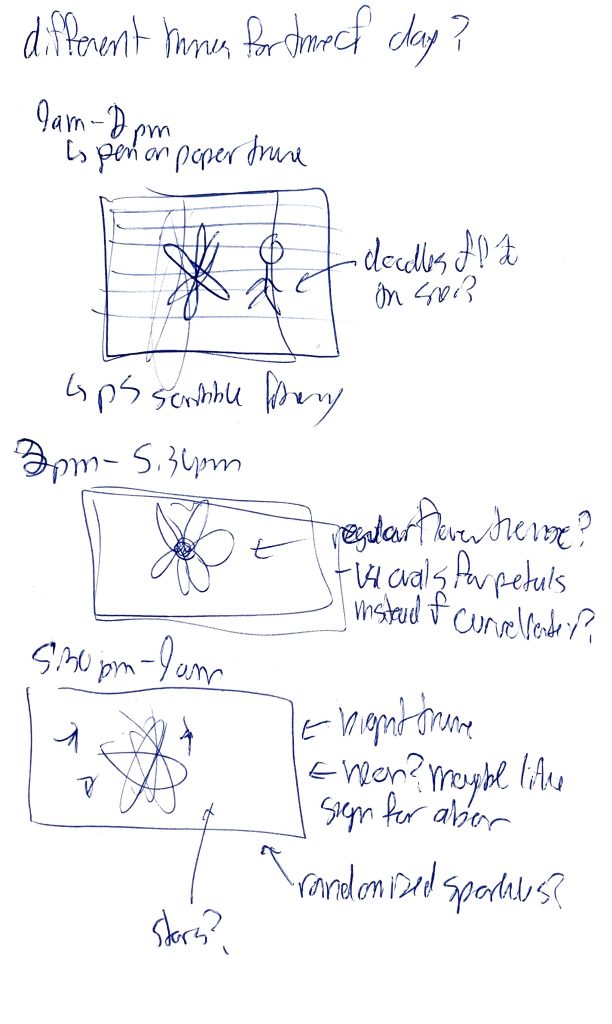 different themes for time of day?
9am-2pm
↳ pen on paper theme
← doodles
on side?
↳ p5 scribble library
2pm-5:30pm
← regular flower theme?
- use ovals for petals
instead of curveVertex?
5:30pm-9am
← Night theme
← neon? maybe like
sign for a bar
randomized sparkles?
stars?